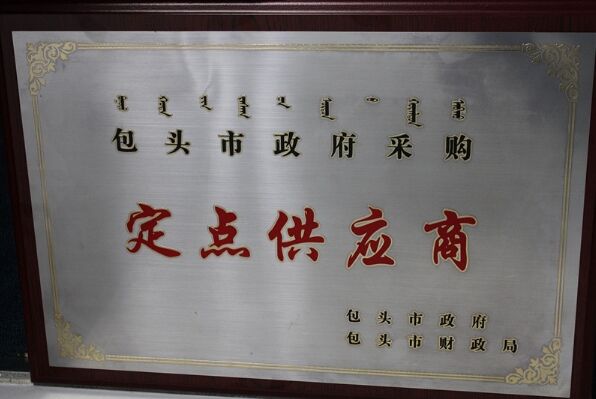 包头市政府采购
定点供应商
包头市政府
包头市财政局